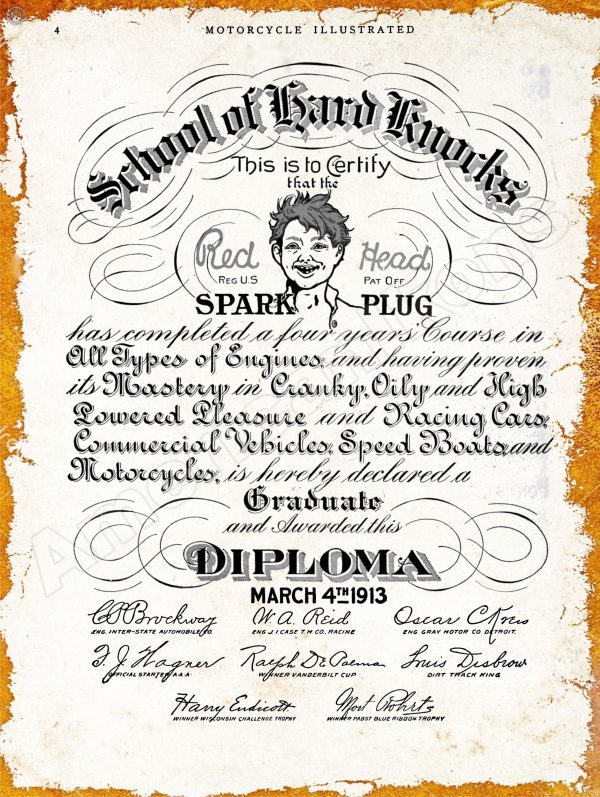 4
MOTORCYCLE ILLUSTRATED
School of Hard Knocks
This is to Certify
that the
Red Head
REG U.S PAT OFF
SPARK PLUG
has completed a four years' Course in
All Types of Engines, and having proven
its Mastery in Cranky, Oily and High
Powered Pleasure and Racing Cars,
Commercial Vehicles, Speed Boats, and
Motorcycles, is hereby declared a
Graduate
and Awarded this
DIPLOMA
MARCH 4TH 1913
W. A. Reid
ENG. INTER-STATE AUTOMOBILE CO. ENG J.I. CASE T. M. CO., RACINE ENG GRAY MOTOR CO DETROIT.
F. J. Wagner Ralph De Palma Louis Disbrow
OFFICIAL STARTER A.A.A WINNER VANDERBILT CUP DIRT TRACK KING
Harry Endicott Mort Roberts
WINNER WISCONSIN CHALLENGE TROPHY WINNER PABST BLUE RIBBON TROPHY